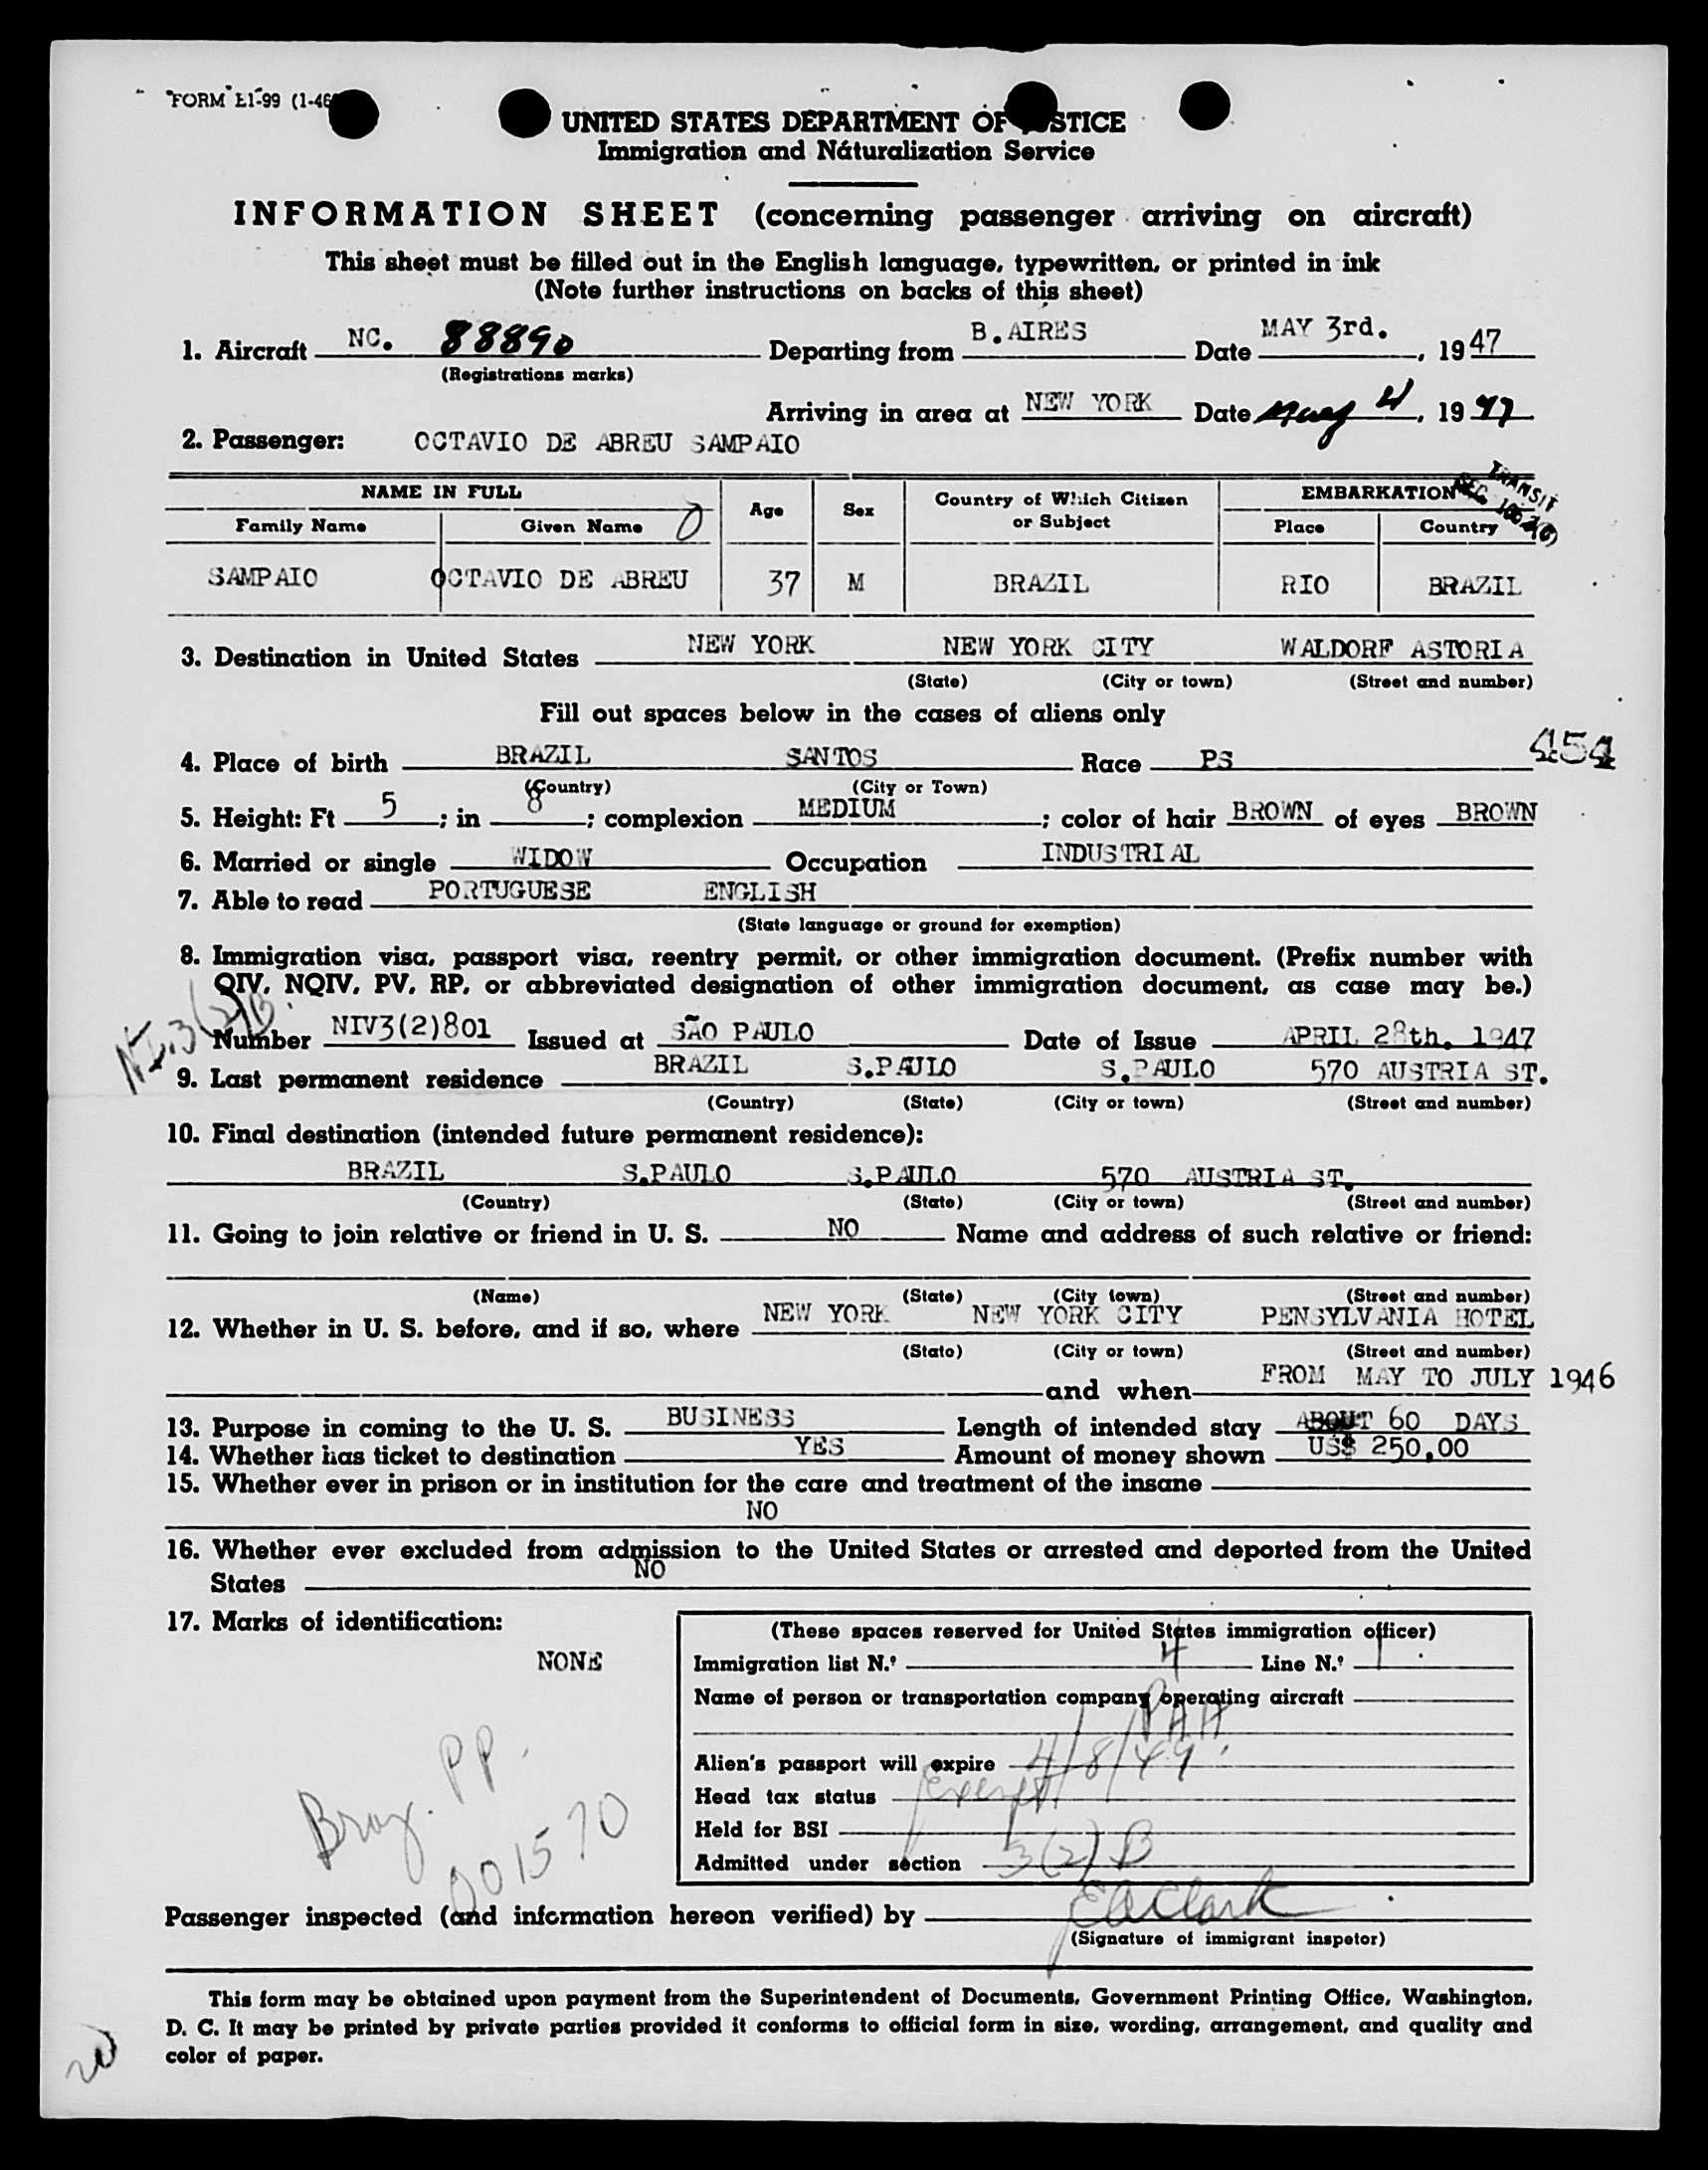 FORM I-99 (1-46
UNITED STATES DEPARTMENT OF STICE
Immigration and Naturalization Service
INFORMATION SHEET (concerning passenger arriving on aircraft)
This sheet must be filled out in the English language, typewritten, or printed in ink
(Note further instructions on backs of this sheet)
1. Aircraft NC. 88890 Departing from B.AIRES Date MAY 3rd., 1947
(Registrations marks)
Arriving in area at NEW YORK Date May 4, 1947
2. Passenger: OCTAVIO DE ABREU SAMPAIO
TRANSIT
NAME IN FULL Age Sex Country of Which Citizen or Subject EMBARKATION
Family Name Given Name Place Country
SAMPAIO OCTAVIO DE ABREU 37 M BRAZIL RIO BRAZIL
3. Destination in United States NEW YORK NEW YORK CITY WALDORF ASTORIA
(State) (City or town) (Street and number)
Fill out spaces below in the cases of aliens only
454
4. Place of birth BRAZIL SANTOS Race PS
(Country) (City or Town)
5. Height: Ft 5; in 8; complexion MEDIUM; color of hair BROWN of eyes BROWN
6. Married or single WIDOW Occupation INDUSTRIAL
7. Able to read PORTUGUESE ENGLISH
(State language or ground for exemption)
8. Immigration visa, passport visa, reentry permit, or other immigration document. (Prefix number with
QIV, NQIV, PV, RP, or abbreviated designation of other immigration document, as case may be.)
Number NIV3(2)801 Issued at SÃO PAULO Date of Issue APRIL 28th. 1947
9. Last permanent residence BRAZIL S.PAULO S.PAULO 570 AUSTRIA ST.
(Country) (State) (City or town) (Street and number)
10. Final destination (intended future permanent residence):
BRAZIL S.PAULO S.PAULO 570 AUSTRIA ST.
(Country) (State) (City or town) (Street and number)
11. Going to join relative or friend in U. S. NO Name and address of such relative or friend:
(Name) (State) (City town) (Street and number)
12. Whether in U. S. before, and if so, where NEW YORK NEW YORK CITY PENSYLVANIA HOTEL
(State) (City or town) (Street and number)
and when FROM MAY TO JULY 1946
13. Purpose in coming to the U. S. BUSINESS Length of intended stay ABOUT 60 DAYS
14. Whether has ticket to destination YES Amount of money shown US$ 250,00
15. Whether ever in prison or in institution for the care and treatment of the insane
NO
16. Whether ever excluded from admission to the United States or arrested and deported from the United
States NO
17. Marks of identification:
NONE
(These spaces reserved for United States immigration officer)
Immigration list N.º 4 Line N.º 1
Name of person or transportation company operating aircraft
PAA
Alien's passport will expire 4/8/49
Head tax status exempt
Held for BSI
Admitted under section 3(2)B
Braz. PP.
001570
Passenger inspected (and information hereon verified) by EAClark
(Signature of immigrant inspetor)
This form may be obtained upon payment from the Superintendent of Documents, Government Printing Office, Washington,
D. C. It may be printed by private parties provided it conforms to official form in size, wording, arrangement, and quality and
color of paper.